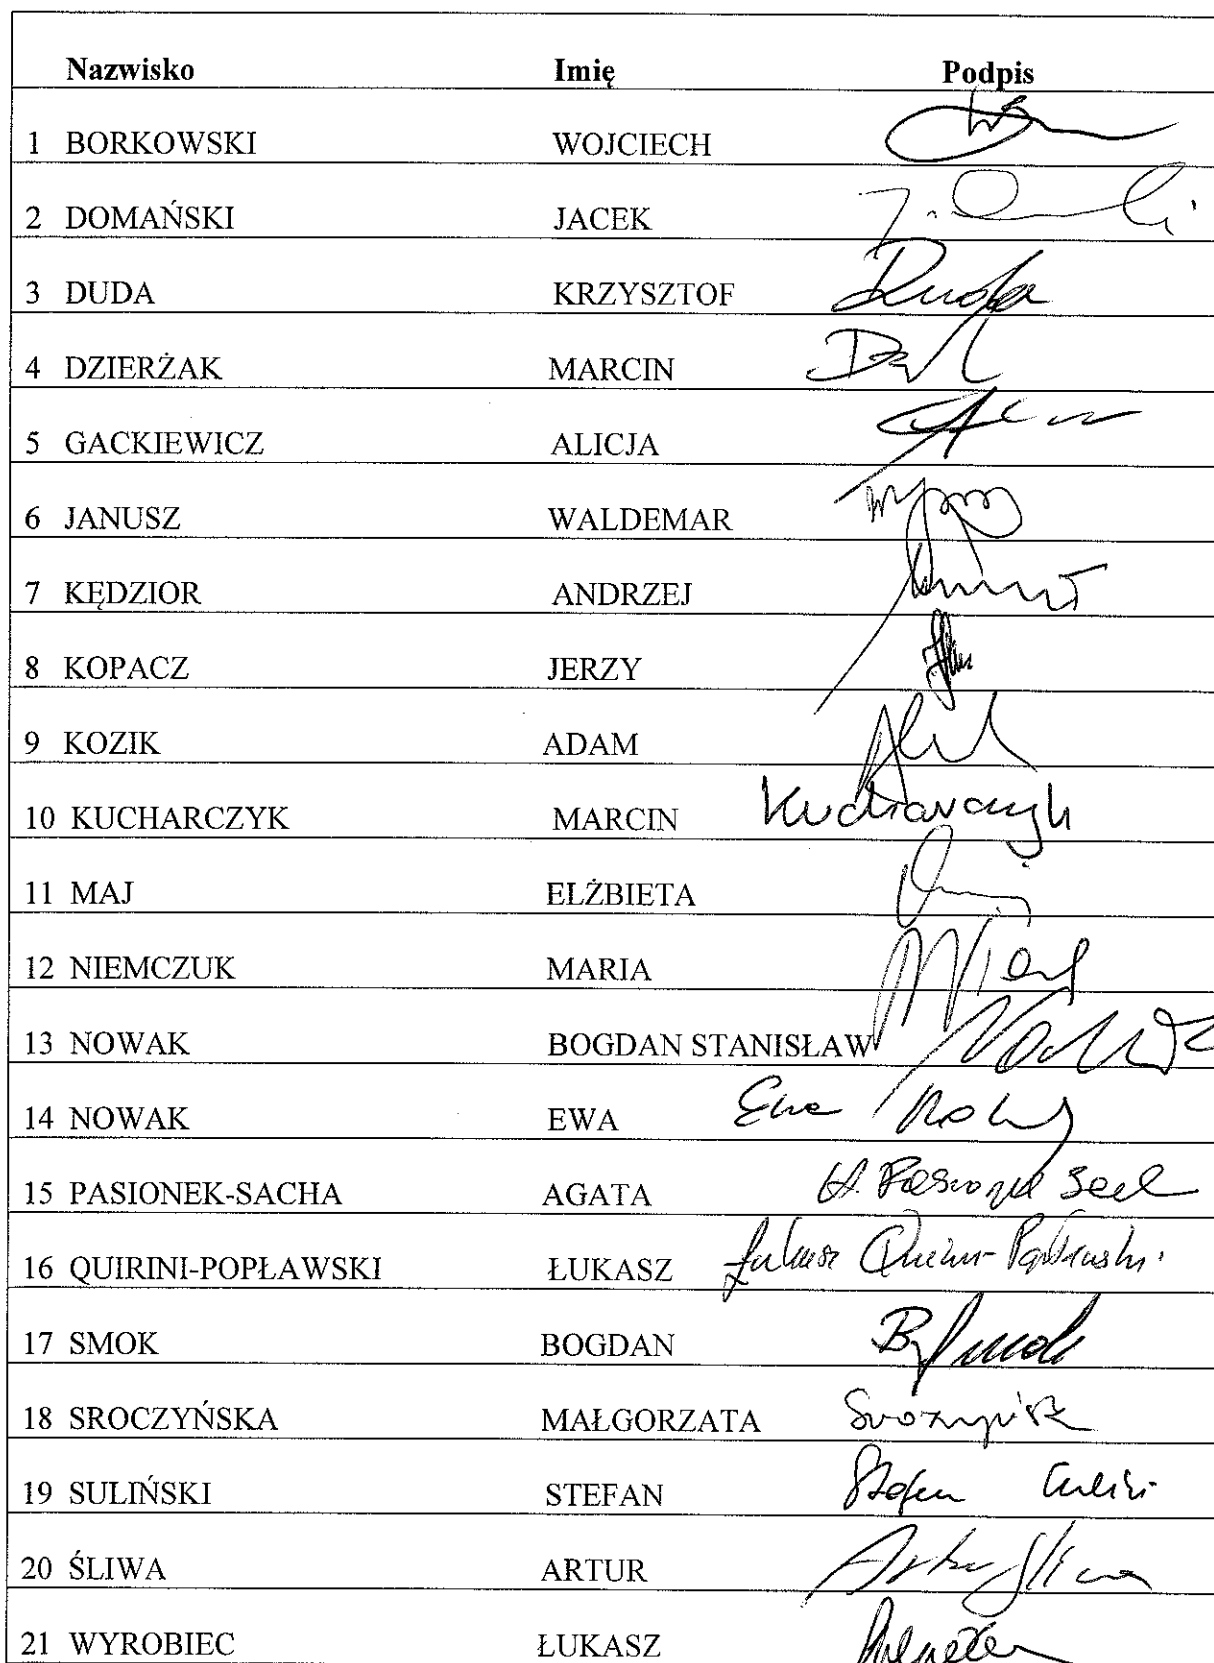 Nazwisko Imię Podpis
1 BORKOWSKI WOJCIECH
2 DOMAŃSKI JACEK
3 DUDA KRZYSZTOF Duda
4 DZIERŻAK MARCIN
5 GACKIEWICZ ALICJA
6 JANUSZ WALDEMAR
7 KĘDZIOR ANDRZEJ
8 KOPACZ JERZY
9 KOZIK ADAM
10 KUCHARCZYK MARCIN Kucharczyk
11 MAJ ELŻBIETA
12 NIEMCZUK MARIA
13 NOWAK BOGDAN STANISŁAW
14 NOWAK EWA Ewa Nowak
15 PASIONEK-SACHA AGATA
16 QUIRINI-POPŁAWSKI ŁUKASZ Łukasz Quirini-Popławski
17 SMOK BOGDAN B. Smok
18 SROCZYŃSKA MAŁGORZATA Sroczyńska
19 SULIŃSKI STEFAN Stefan
20 ŚLIWA ARTUR Artur Śliwa
21 WYROBIEC ŁUKASZ